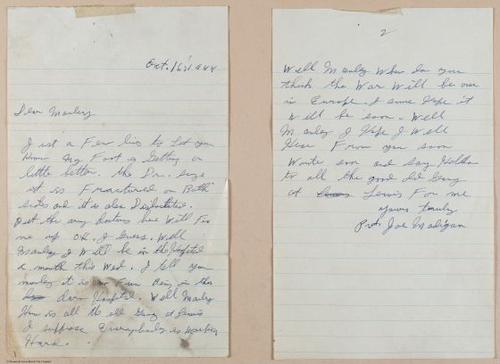 Oct. 16, 1944
Dear Manley
Just a Few lins to Let you
Know My Foot is Getting a
little better. the Dr. says
it is Fractured on Both
sides and it is also Dislocated.
But the army doctors here Will Fix
me up OK. I Guess. Well
Manley I Will be in the Hospital
a month this Wed. I tell you
manley it is no Fun Being in this
dam Hospital. Well Manley
How is all the old Gang at
I suppose Everybody is Working
Hard.
2
Well Manley When do you
think the War Will be over
in Europe. I sure Hope it
Will be soon. Well
Manley I Hope I Will
Hear From you soon
Write soon and say Hello
to all the good old Gang
at Lewis For me
yours truly
Pvt. Joe Madigan